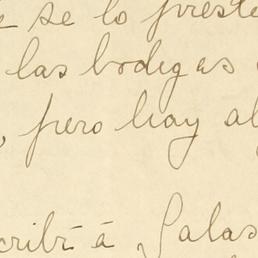 se lo preste
las bodegas
, pero hay al
cribí á Salas